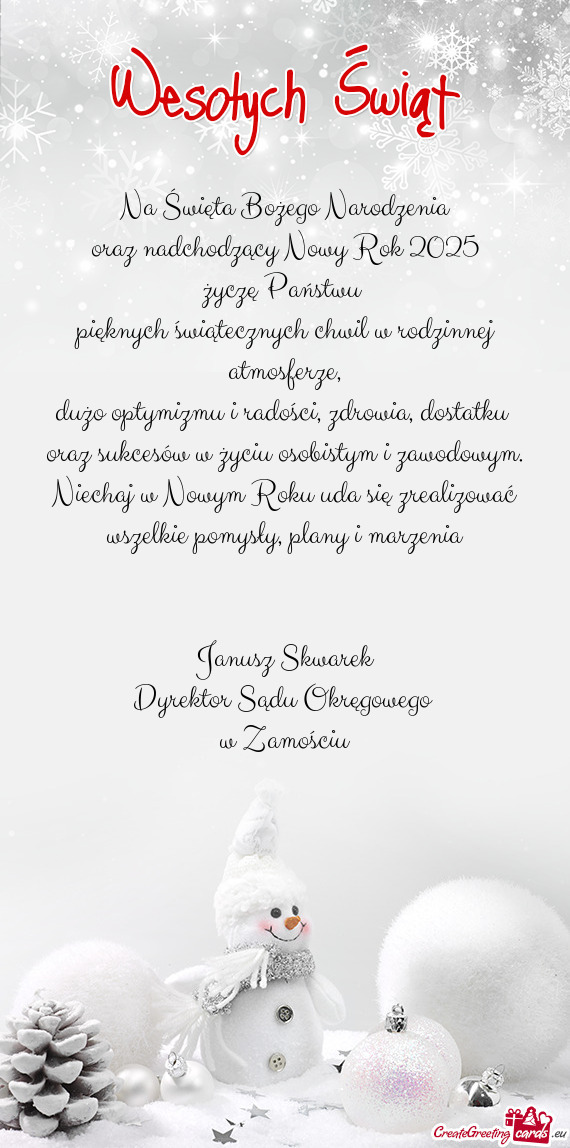 Wesołych Świąt
Na Święta Bożego Narodzenia
oraz nadchodzący Nowy Rok 2025
życzę Państwu
pięknych świątecznych chwil w rodzinnej
atmosferze,
dużo optymizmu i radości, zdrowia, dostatku
oraz sukcesów w życiu osobistym i zawodowym.
Niechaj w Nowym Roku uda się zrealizować
wszelkie pomysły, plany i marzenia
Janusz Skwarek
Dyrektor Sądu Okręgowego
w Zamościu
CreateGreetingcards.eu